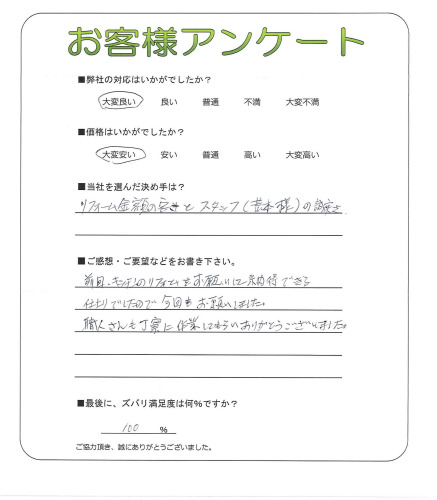 お客様アンケート
■弊社の対応はいかがでしたか？
大変良い 良い 普通 不満 大変不満
■価格はいかがでしたか？
大変安い 安い 普通 高い 大変高い
■当社を選んだ決め手は？
リフォーム金額の安さとスタッフ( 様)の誠実さ
■ご感想・ご要望などをお書き下さい。
前回、キッチンのリフォームをお願いし、 できる
仕上りでしたので今回もお願いしました。
職人さんも丁寧に作業してもらいありがとうございました。
■最後に、ズバリ満足度は何％ですか？
100 ％
ご協力頂き、誠にありがとうございました。